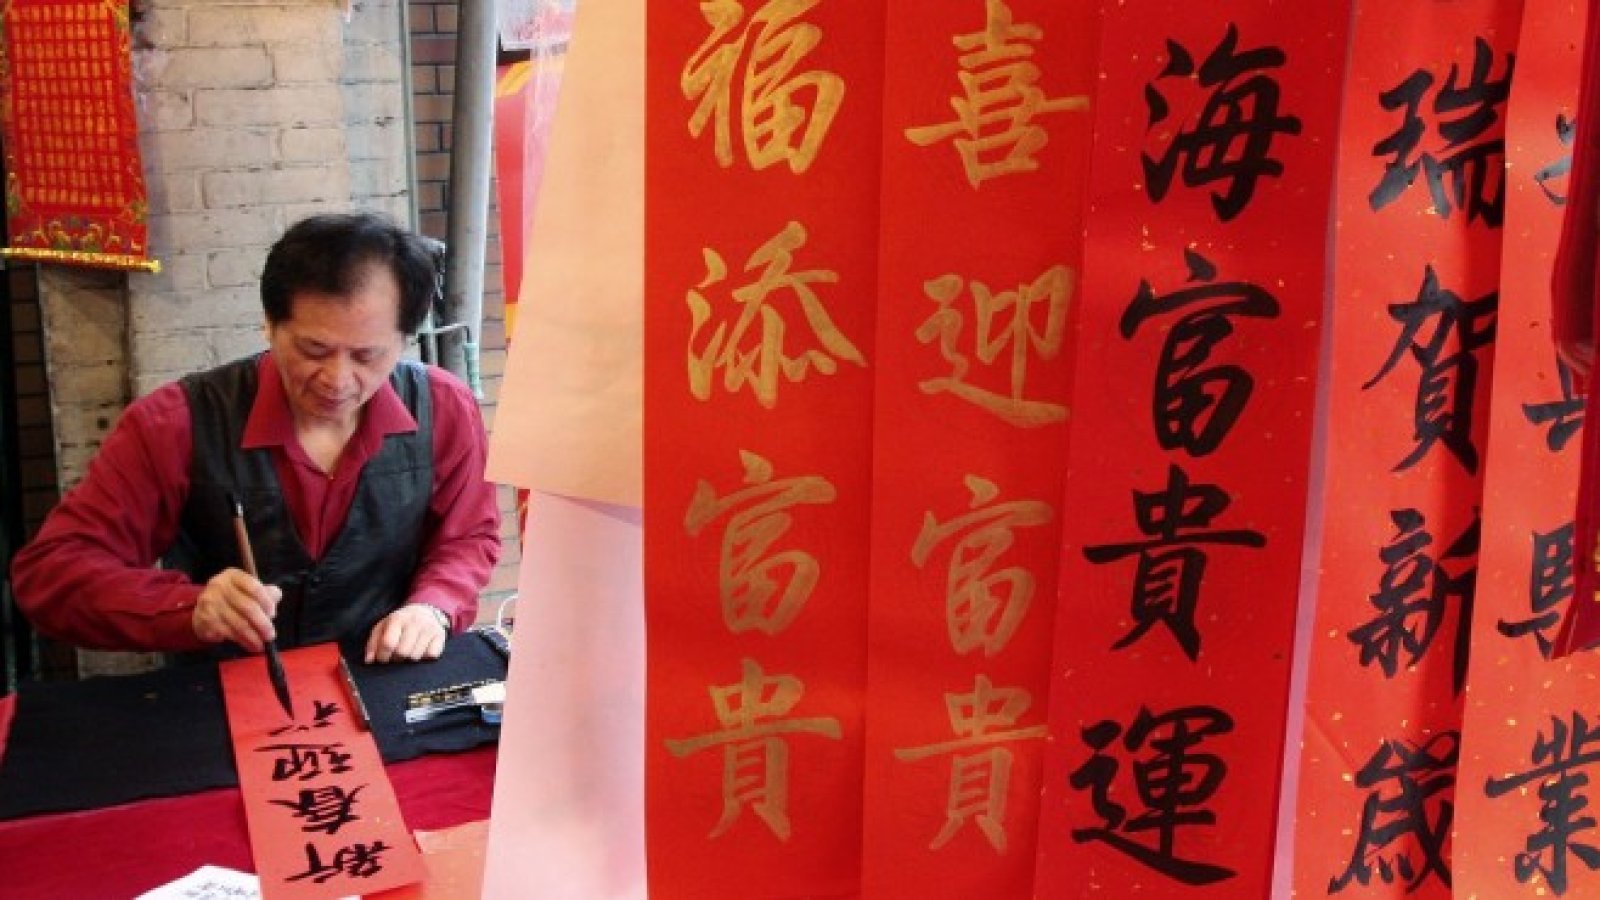 新春迎
福添富貴
喜迎富貴
海富貴運
瑞賀新歲
業